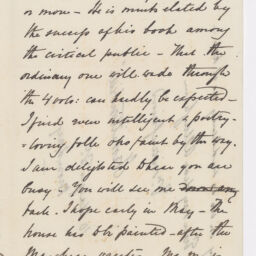 or more – He is much elated by
the success of his book among
the critical public – That the
ordinary one will wade through
the 4 vols: can hardly be expected –
I find even intelligent & poetry-
loving folk who faint by the way.
I am delighted to hear you are
busy – You will see me
back. I hope early in May – The
house has to be painted – after the